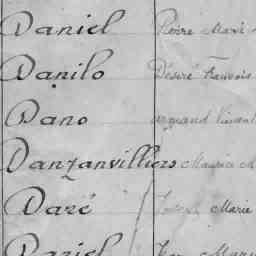 Daniel Pierre Marie
Danilo Désiré François
Dano Vincent
Danzanvilliers Maurice M
Daré Joseph Marie
Dariel Jean Marie